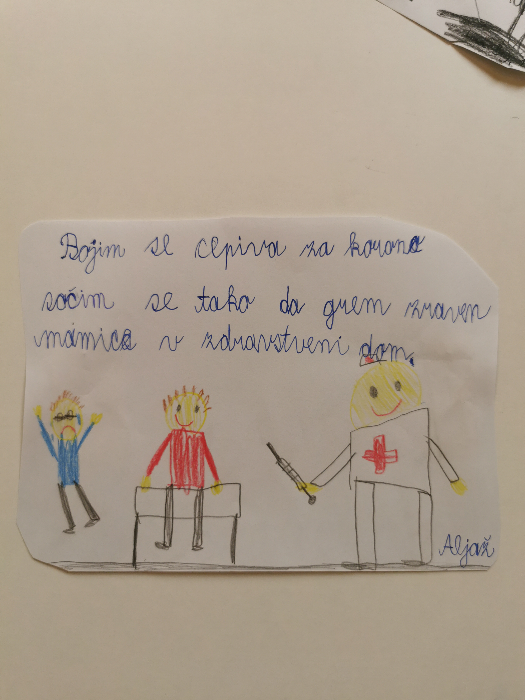 Bojim se cepiva za korona
sočim se tako da grem zraven
mamice v zdravstveni dom.
Aljaž